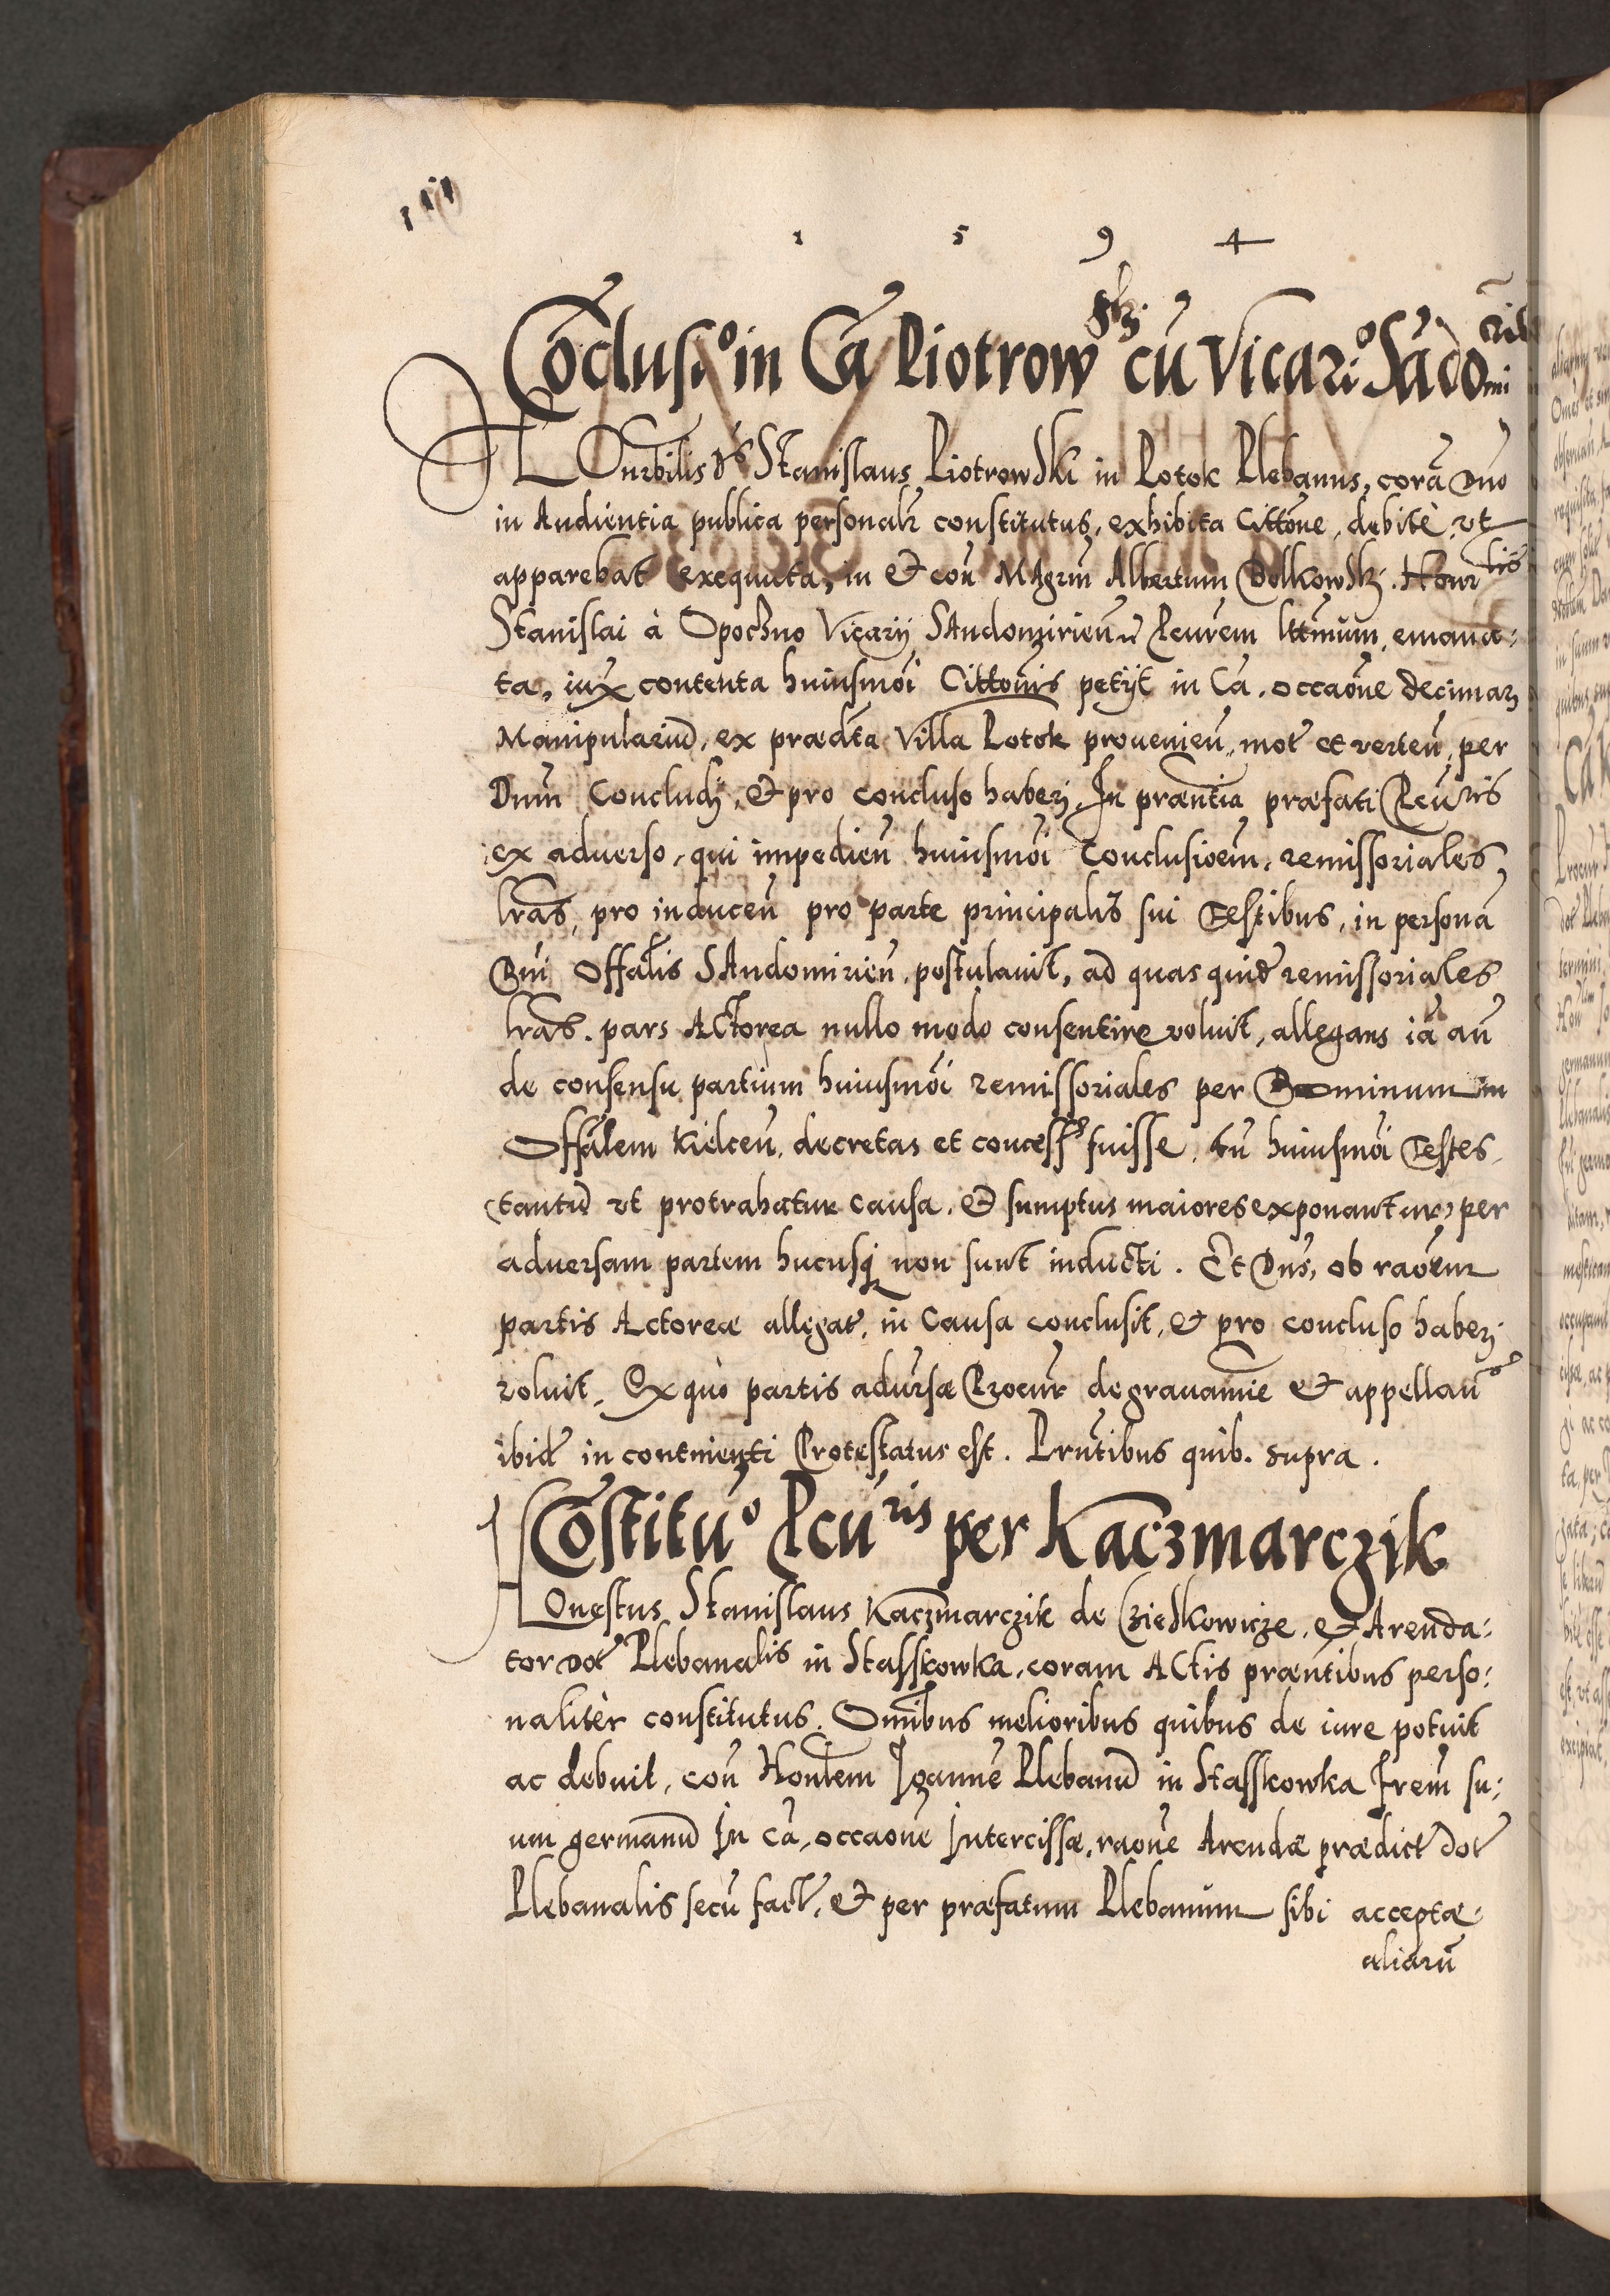 1 5 9 4
Cōclusio in Cā Piotrowskj cū Vicario Sādomirien
HOnrbilis ds Stanislaus Piotrowski in Potok Plebanus, corā Dno
in Audientia publica personalr constitutus, exhibita Cittōne, debitè vt
apparebat exequuta, in & con Magrm Albertum Bolkowskj. Honrlis
Stanislai à Opoczno Vicarij Sandomirien Pcurem lttmum, emana:
ta, iux contenta huiusmōi Cittonis petijt in Cā. occaōne decimarz
Manipulariū, ex prædcta Villa Potok prouenien, mot et verten, per
Dnm Concludj, & pro concluso haberj. In præntia præfati Pcuris
ex aduerso, qui impedien huiusmōi Conclusioem, remissoriales
lrās, pro inducen pro parte principalis sui Testibus, in personā
Dni Offālis Sandomirien, postulauit, ad quas quidē remissoriales
lrās. pars Actorea nullo modo consentire voluit, allegans iā an
de consensu partium huiusmōi remissoriales per Dominum
Offālem Kielcen. decretas et concess fuisse. huiusmōi Testes
tantū vt protrahatur causa. & sumptus maiores exponantur, per
aduersam partem hucusq non sunt inducti. Et Dns, ob raōem
partis Actoreæ allegat, in Causa conclusit, & pro concluso haberj
voluit. Ex quo partis aduersæ Procur de grauamine & appellano
ibidē in continenti Protestatus est. Prntibus quib. supra.
Cōstituo Pcuris per Kaczmarczik
HOnestus Stanislaus Kaczmarczik de Cziedkowicze, & Arenda:
tor dot Plebanalis in Stasskowka, coram Actis præntibus perso:
naliter constitutus. Omnibus melioribus quibus de iure potuit
ac debuit, con Honlem Joannē Plebanū in Stasskowka frem su:
um germanū In Cā, occaōne Intercissæ, raōne Arendæ prædict dot
Plebanalis secū fact, & per præfatum Plebanum sibi acceptæ
aliarū